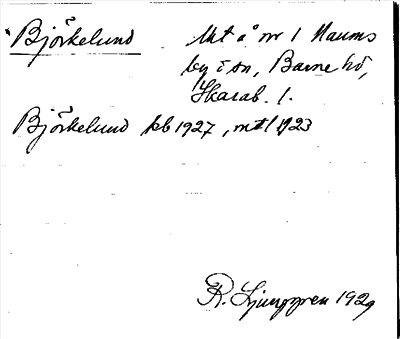 Björkelund Uht å nr 1 Naums
by i sn, Barne hd,
Skarab. l.
Björkelund kb 1927, mtl 1923
R. Ljunggren 1929